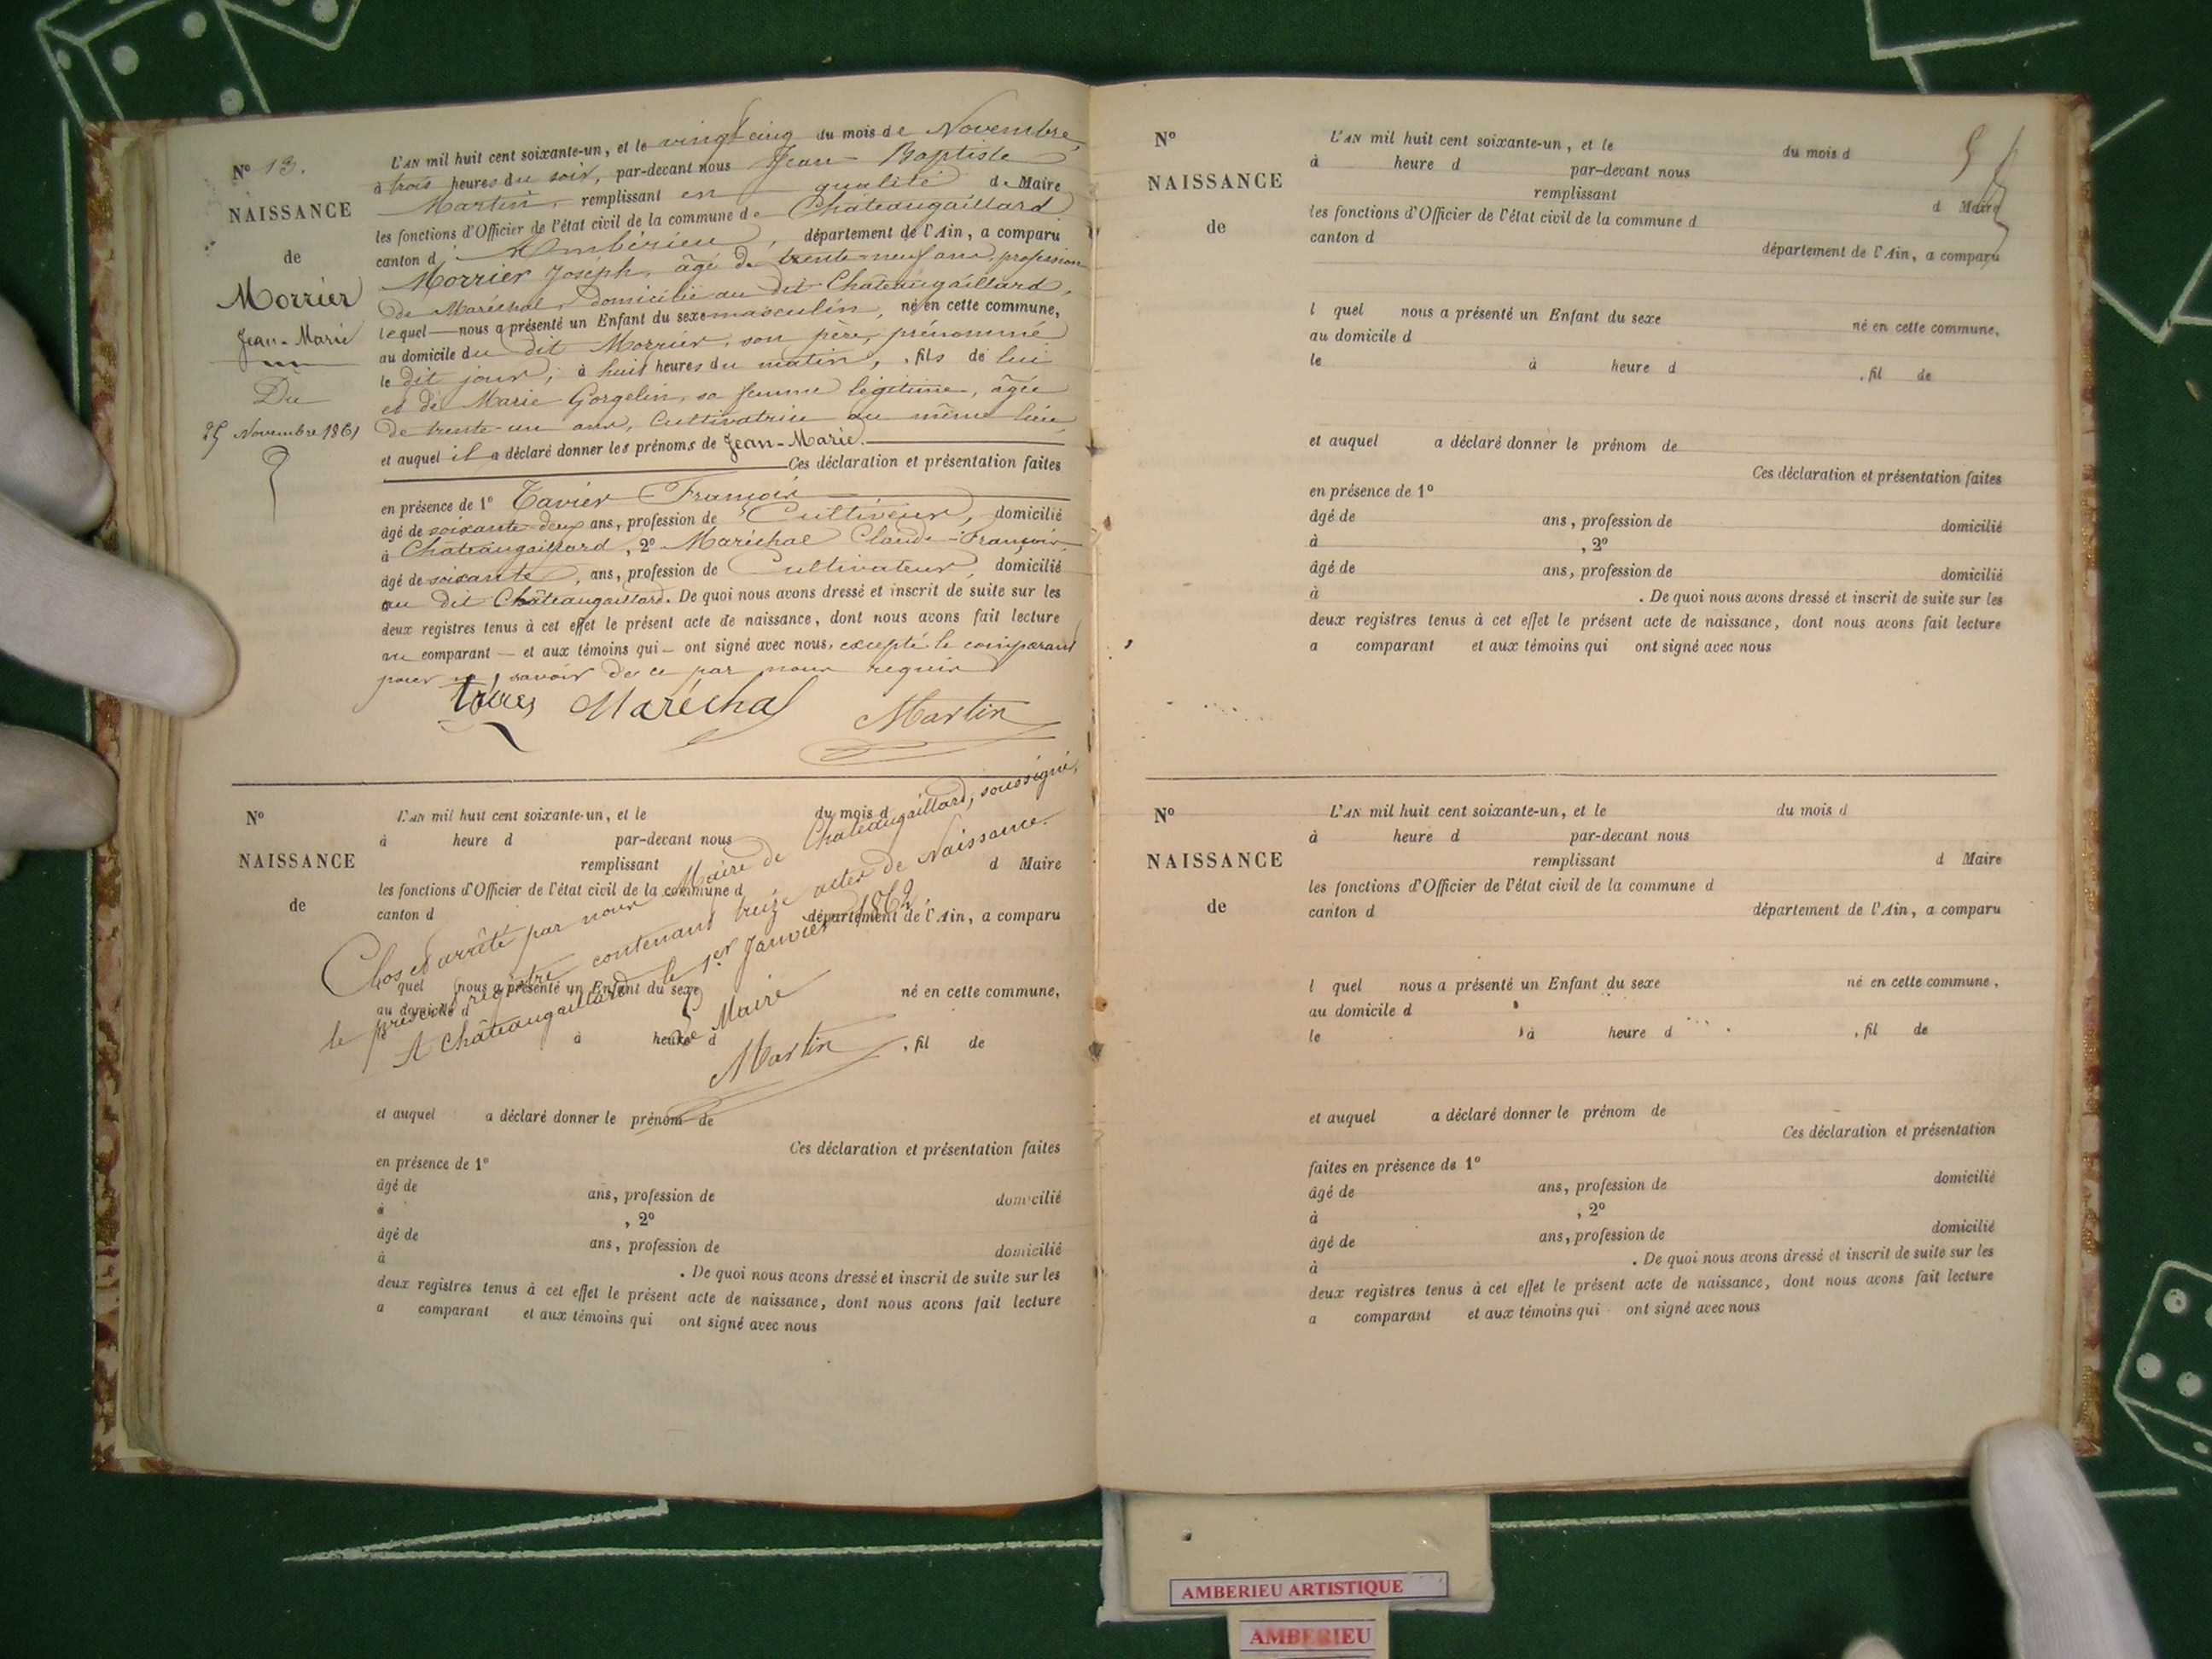 N° 13.
NAISSANCE
de
Morrier
Jean-Marie
Du
25 Novembre 1861
L'AN mil huit cent soixante-un, et le vingt cinq du mois de Novembre,
à trois heures du soir, par-devant nous Jean-Baptiste
Martin, remplissant en qualité de Maire
les fonctions d'Officier de l'état civil de la commune de Châteaugaillard
canton d'Ambérieu, département de l'Ain, a comparu
Morrier Joseph, âgé de trente-neuf ans, profession
de Maréchal, domicilié au dit Châteaugaillard,
lequel nous a présenté un Enfant du sexe masculin, né en cette commune,
au domicile du dit Morrier, son père, prénommé
le dit jour, à huit heures du matin, fils de lui
et de Marie Gorgelin, sa femme légitime, âgée
de trente-un ans, Cultivatrice au même lieu,
et auquel il a déclaré donner les prénoms de Jean-Marie.
Ces déclaration et présentation faites
en présence de 1° Tavier François
âgé de soixante-deux ans, profession de Cultiveur, domicilié
à Châteaugaillard, 2° Maréchal Claude-François,
âgé de soixante, ans, profession de Cultivateur, domicilié
au dit Châteaugaillard. De quoi nous avons dressé et inscrit de suite sur les
deux registres tenus à cet effet le présent acte de naissance, dont nous avons fait lecture
au comparant — et aux témoins qui — ont signé avec nous, excepté le comparant
pour savoir de ce par nous requis
Maréchal Martin
N°
NAISSANCE
de
L'AN mil huit cent soixante-un, et le du mois d
à heure d par-devant nous
remplissant d Maire
les fonctions d'Officier de l'état civil de la commune d
canton d département de l'Ain, a comparu
l quel nous a présenté un Enfant du sexe né en cette commune,
au domicile d
le à heure d , fil de
et auquel a déclaré donner le prénom de
Ces déclaration et présentation faites
en présence de 1°
âgé de ans, profession de domicilié
à , 2°
âgé de ans, profession de domicilié
à . De quoi nous avons dressé et inscrit de suite sur les
deux registres tenus à cet effet le présent acte de naissance, dont nous avons fait lecture
a comparant et aux témoins qui ont signé avec nous
Clos et arrêté par nous Maire de Châteaugaillard, soussigné,
le présent registre contenant treize actes de Naissance.
A Châteaugaillard le 1er Janvier 1862.
Le Maire
Martin
N°
NAISSANCE
de
L'AN mil huit cent soixante-un, et le du mois d
à heure d par-devant nous
remplissant d Maire
les fonctions d'Officier de l'état civil de la commune d
canton d département de l'Ain, a comparu
l quel nous a présenté un Enfant du sexe né en cette commune,
au domicile d
le à heure d , fil de
et auquel a déclaré donner le prénom de
Ces déclaration et présentation faites
en présence de 1°
âgé de ans, profession de domicilié
à , 2°
âgé de ans, profession de domicilié
à . De quoi nous avons dressé et inscrit de suite sur les
deux registres tenus à cet effet le présent acte de naissance, dont nous avons fait lecture
a comparant et aux témoins qui ont signé avec nous
N°
NAISSANCE
de
L'AN mil huit cent soixante-un, et le du mois d
à heure d par-devant nous
remplissant d Maire
les fonctions d'Officier de l'état civil de la commune d
canton d département de l'Ain, a comparu
l quel nous a présenté un Enfant du sexe né en cette commune,
au domicile d
le à heure d , fil de
et auquel a déclaré donner le prénom de
Ces déclaration et présentation
faites en présence de 1°
âgé de ans, profession de domicilié
à , 2°
âgé de ans, profession de domicilié
à . De quoi nous avons dressé et inscrit de suite sur les
deux registres tenus à cet effet le présent acte de naissance, dont nous avons fait lecture
a comparant et aux témoins qui ont signé avec nous
AMBERIEU ARTISTIQUE
AMBERIEU